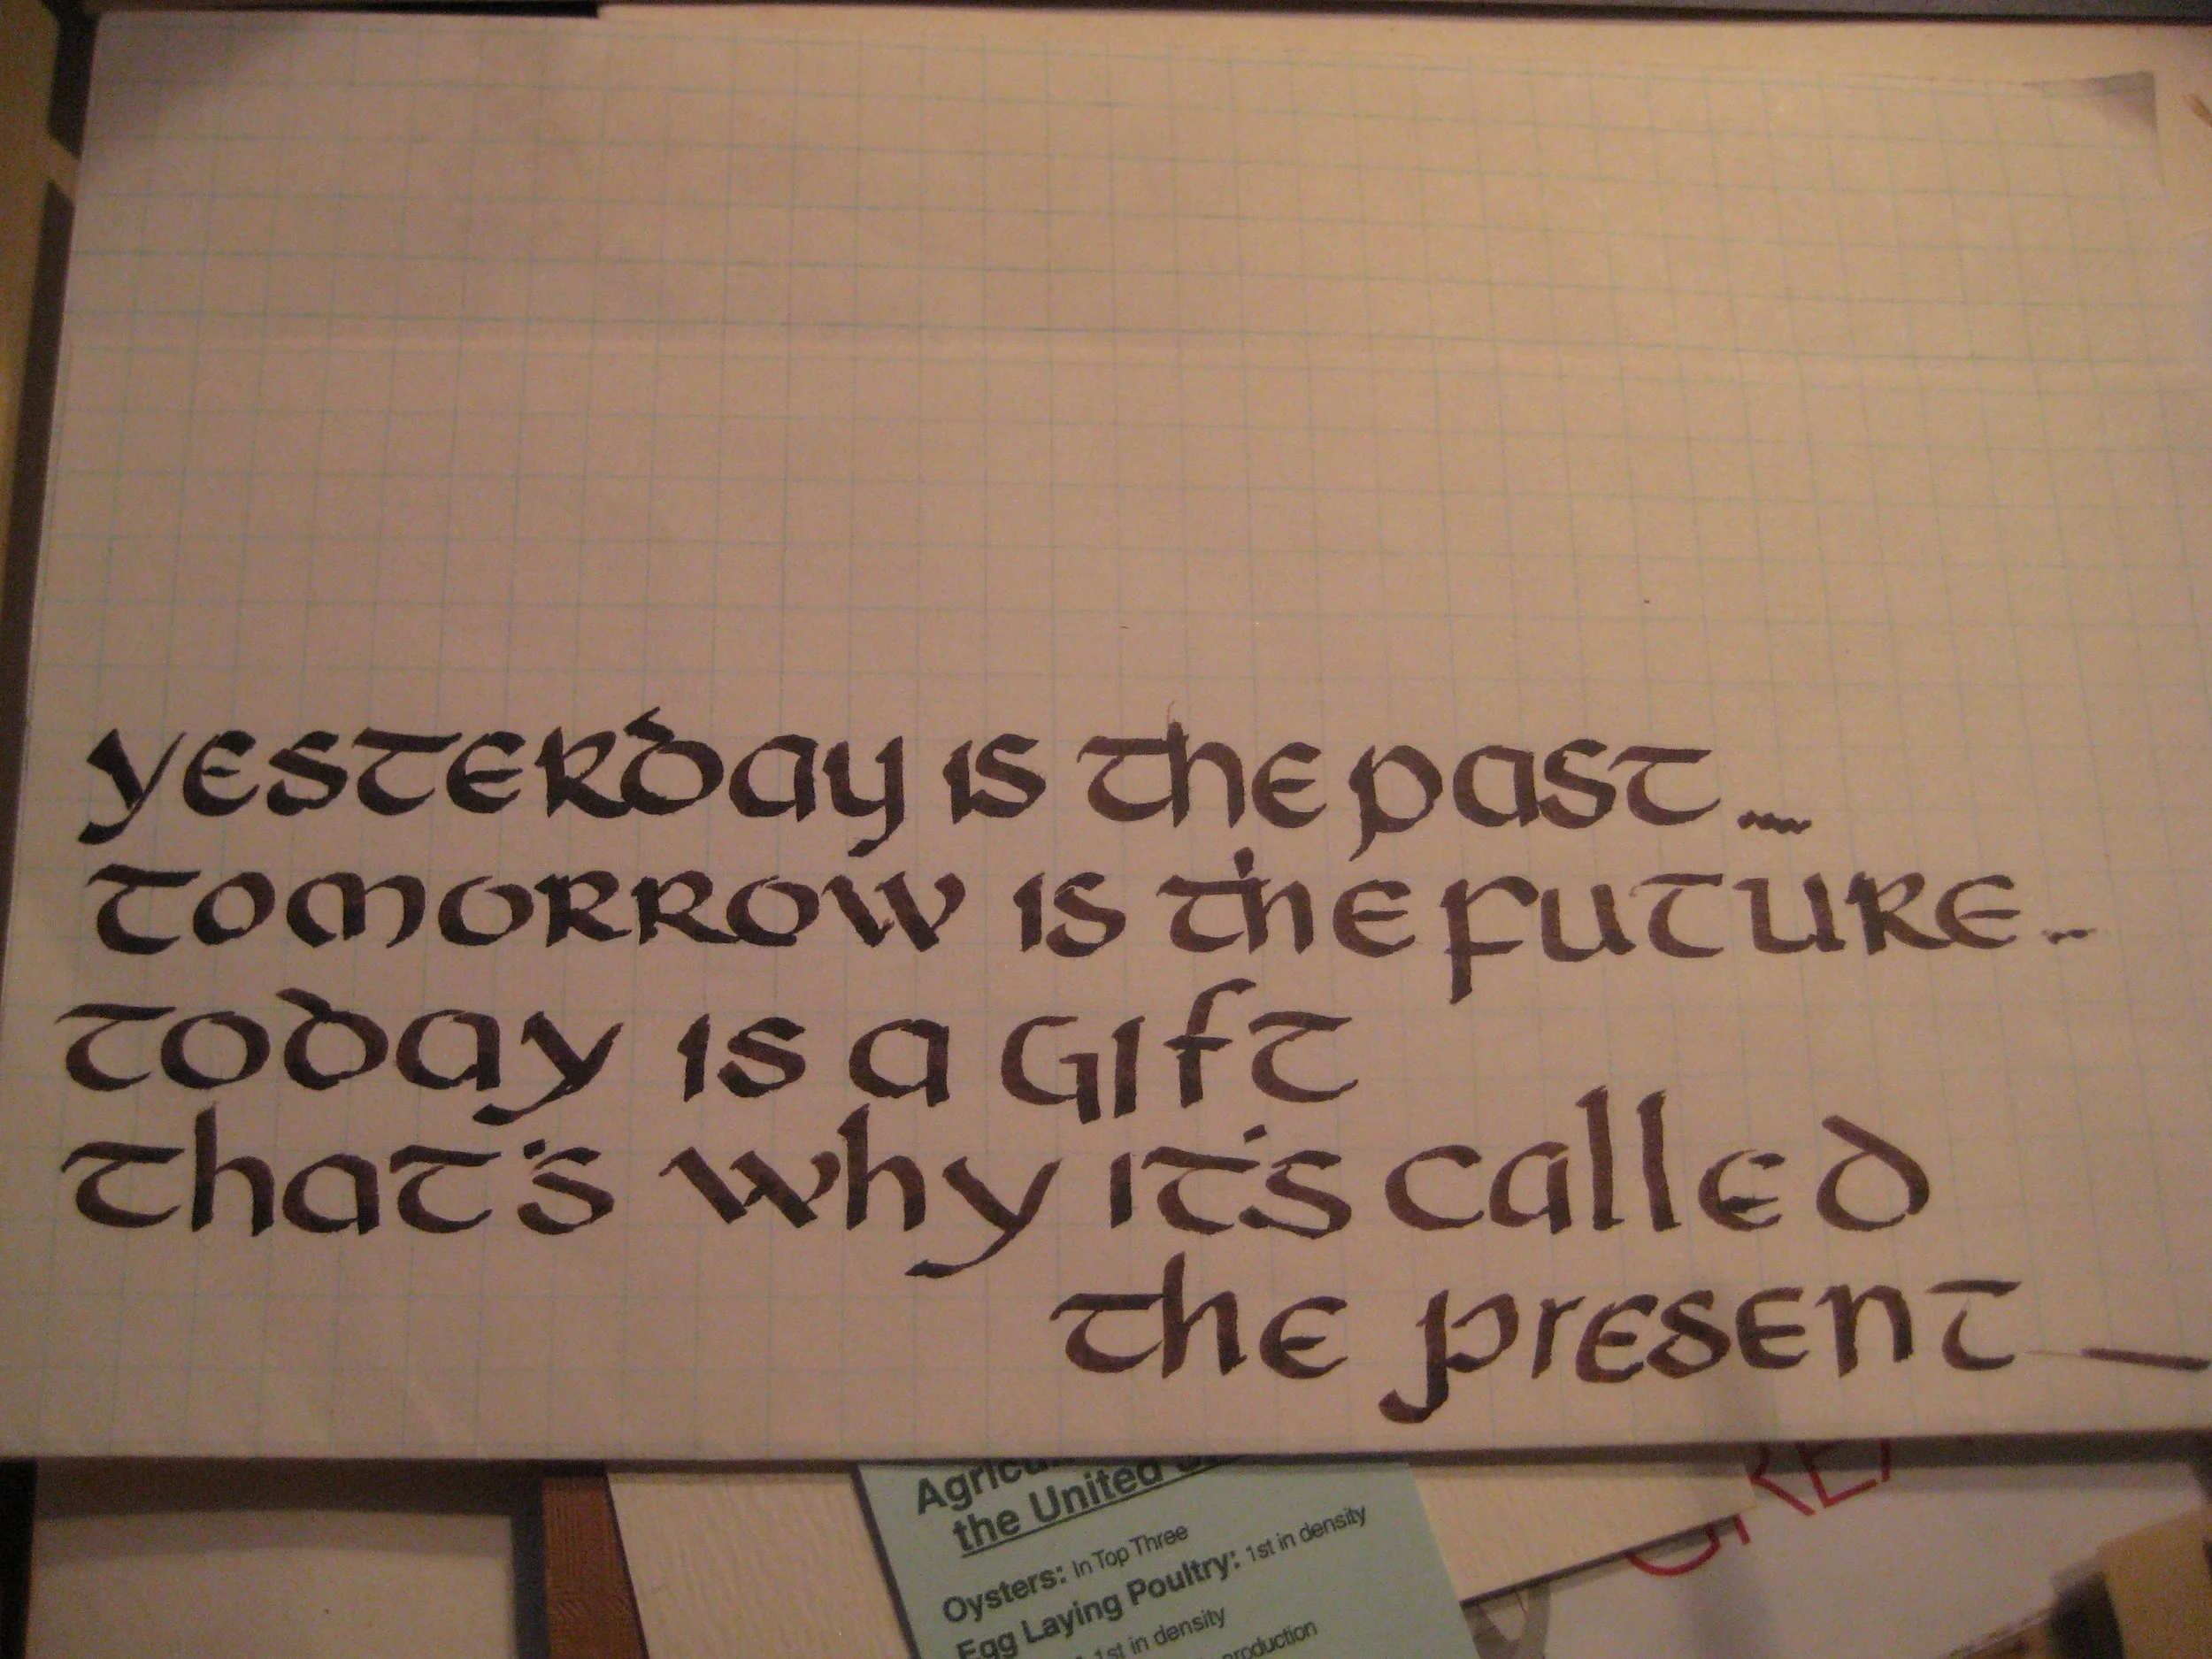 yesterday is the past...
tomorrow is the future..
today is a gift
that's why it's called
the present
the United
Oysters: In Top Three
Egg Laying Poultry: 1st in density
1st in density